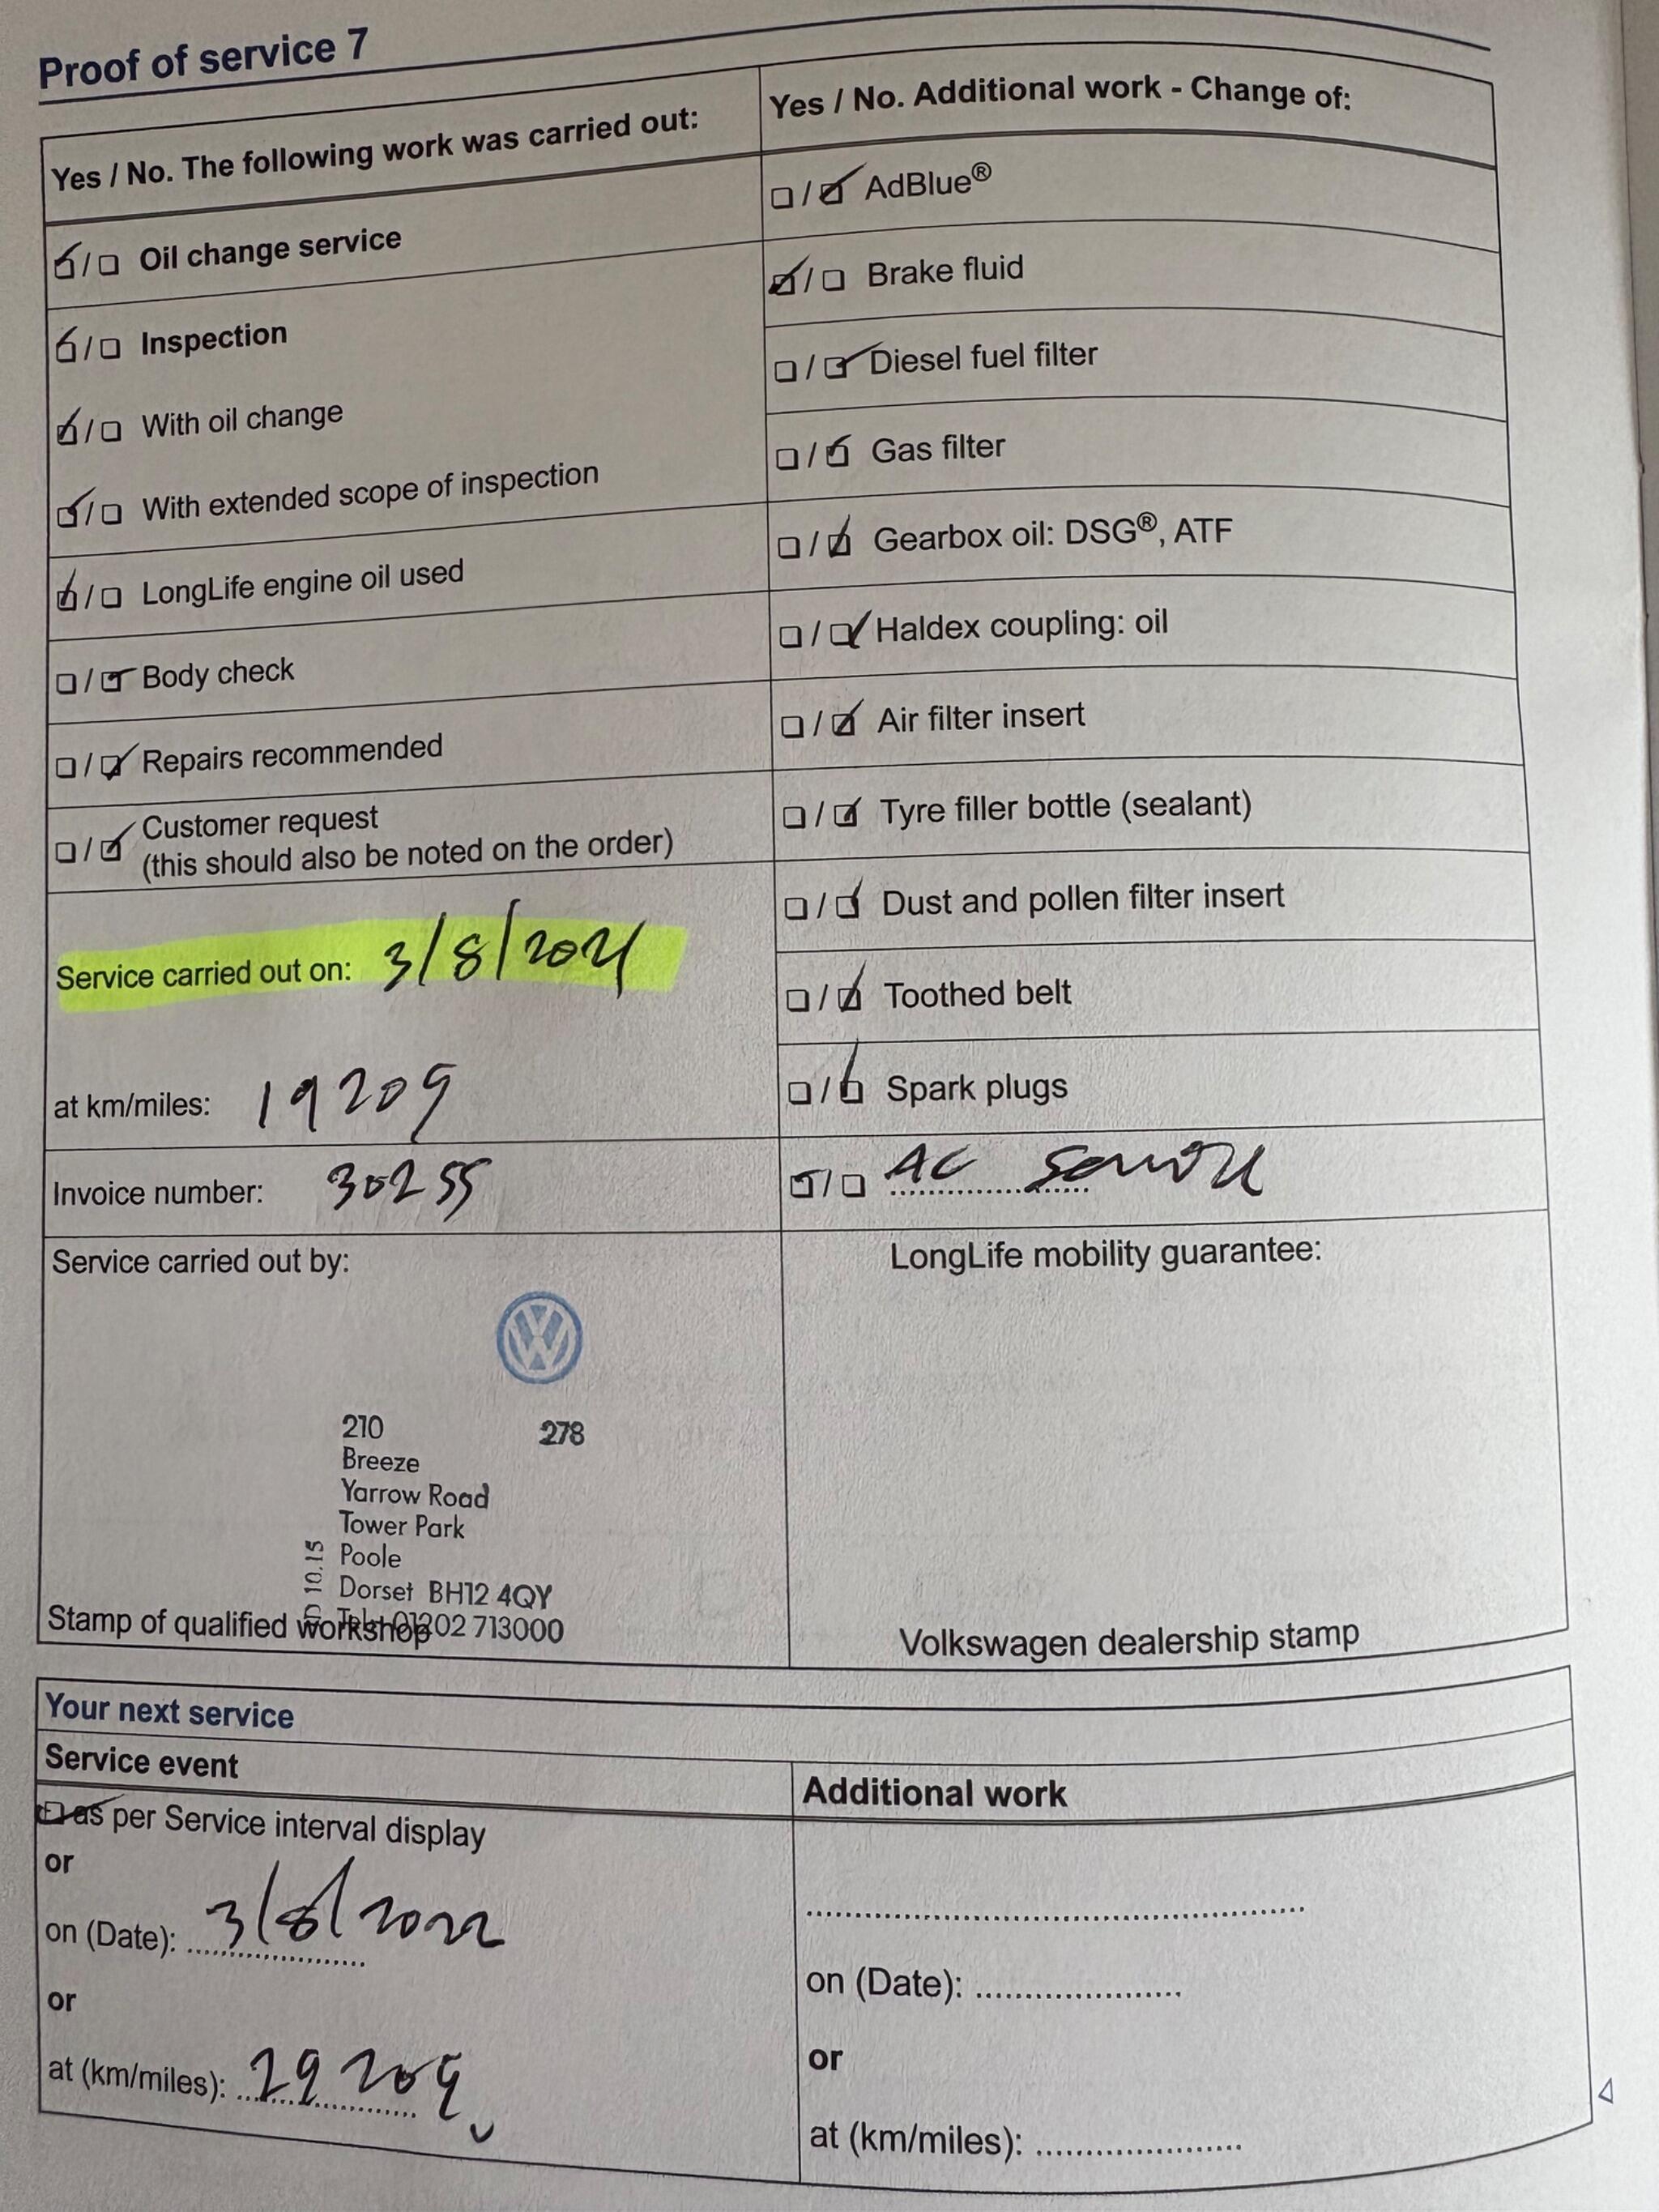 Proof of service 7
Yes / No. The following work was carried out:
Oil change service
Inspection
With oil change
With extended scope of inspection
LongLife engine oil used
Body check
Repairs recommended
Customer request
(this should also be noted on the order)
Service carried out on: 3/8/2021
at km/miles: 19209
Invoice number: 30255
Yes / No. Additional work - Change of:
AdBlue®
Brake fluid
Diesel fuel filter
Gas filter
Gearbox oil: DSG®, ATF
Haldex coupling: oil
Air filter insert
Tyre filler bottle (sealant)
Dust and pollen filter insert
Toothed belt
Spark plugs
AC Service
Service carried out by:
VW
210 278
Breeze
Yarrow Road
Tower Park
Poole
Dorset BH12 4QY
Tel: 01202 713000
10.15
Stamp of qualified workshop
LongLife mobility guarantee:
Volkswagen dealership stamp
Your next service
Service event
as per Service interval display
or
on (Date): 3/8/2022
or
at (km/miles): 29209
Additional work
on (Date):
or
at (km/miles):